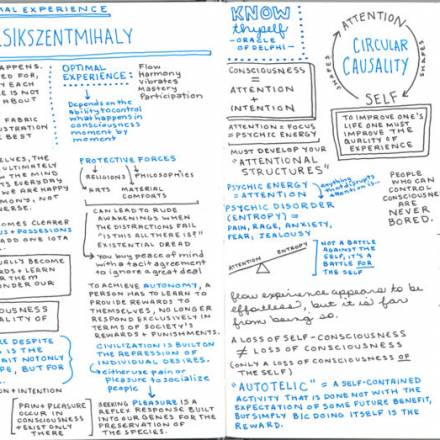 MAL EXPERIENCE
LSIKSZENTMIHALY
APPENS.
ED FOR,
Y EACH
E IS NOT
ABOUT
FABRIC
USTRATION
E BEST
ELVES, THE
ULTIMATELY
THE MIND
TS EVERYDAY
ARE HAPPY
MONY, NOT
VERSE.
OMES CLEARER
US + POSSESSIONS
ADD ONE IOTA
URALLY BECOME
RDS + LEARN
OR THEM
NDER OUR
OUSNESS
ALITY OF
RE DESPITE
IS THE
IT NOT ONLY
PE, BUT FOR
N + INTENTION
OPTIMAL
EXPERIENCE:
Flow
Harmony
Vibrates
Mastery
Participation
Depends on the
ability to control
what happens in
consciousness
moment by
moment
PROTECTIVE FORCES
RELIGIONS PHILOSOPHIES
ARTS MATERIAL
COMFORTS
CAN LEAD TO RUDE
AWAKENINGS WHEN
THE DISTRACTIONS FAIL
"IS THIS ALL THERE IS?"
EXISTENTIAL DREAD
You buy peace of mind
with a tacit agreement
to ignore a great deal
TO ACHIEVE AUTONOMY, A
PERSON HAS TO LEARN TO
PROVIDE REWARDS TO
THEMSELVES, NO LONGER
RESPOND EXCLUSIVELY IN
TERMS OF SOCIETY'S
REWARDS + PUNISHMENTS.
CIVILIZATION IS BUILT ON
THE REPRESSION OF
INDIVIDUAL DESIRES.
either use pain or
pleasure to socialize
people
PAIN + PLEASURE
OCCUR IN
CONSCIOUSNESS
+ EXIST ONLY
THERE
SEEKING PLEASURE IS A
REFLEX RESPONSE BUILT
INTO OUR GENES FOR THE
PRESERVATION OF
THE SPECIES.
KNOW
thyself
-ORACLE
OF
DELPHI-
CONSCIOUSNESS
=
ATTENTION
+
INTENTION
ATTENTION = FOCUS
= PSYCHIC ENERGY
MUST DEVELOP YOUR
"ATTENTIONAL
STRUCTURES"
ATTENTION
SHAPES
CIRCULAR
CAUSALITY
SHAPES
SELF
TO IMPROVE ONE'S
LIFE ONE MUST
IMPROVE THE
QUALITY OF
EXPERIENCE
PSYCHIC ENERGY
= ATTENTION
anything
that disrupts
attention is
PSYCHIC DISORDER
(ENTROPY) =
PAIN, RAGE, ANXIETY,
FEAR, JEALOUSY
PEOPLE
WHO CAN
CONTROL
CONSCIOUSNESS
ARE
NEVER
BORED.
ATTENTION
ENTROPY
NOT A BATTLE
AGAINST THE
SELF, IT'S A
BATTLE FOR
THE SELF
flow experience appears to be
effortless, but it is far
from being so.
A LOSS OF SELF-CONSCIOUSNESS
≠ LOSS OF CONSCIOUSNESS
(ONLY A LOSS OF CONSCIOUSNESS OF
THE SELF)
"AUTOTELIC" = A SELF-CONTAINED
ACTIVITY THAT IS DONE NOT WITH THE
EXPECTATION OF SOME FUTURE BENEFIT,
BUT SIMPLY B/C DOING ITSELF IS THE
REWARD.